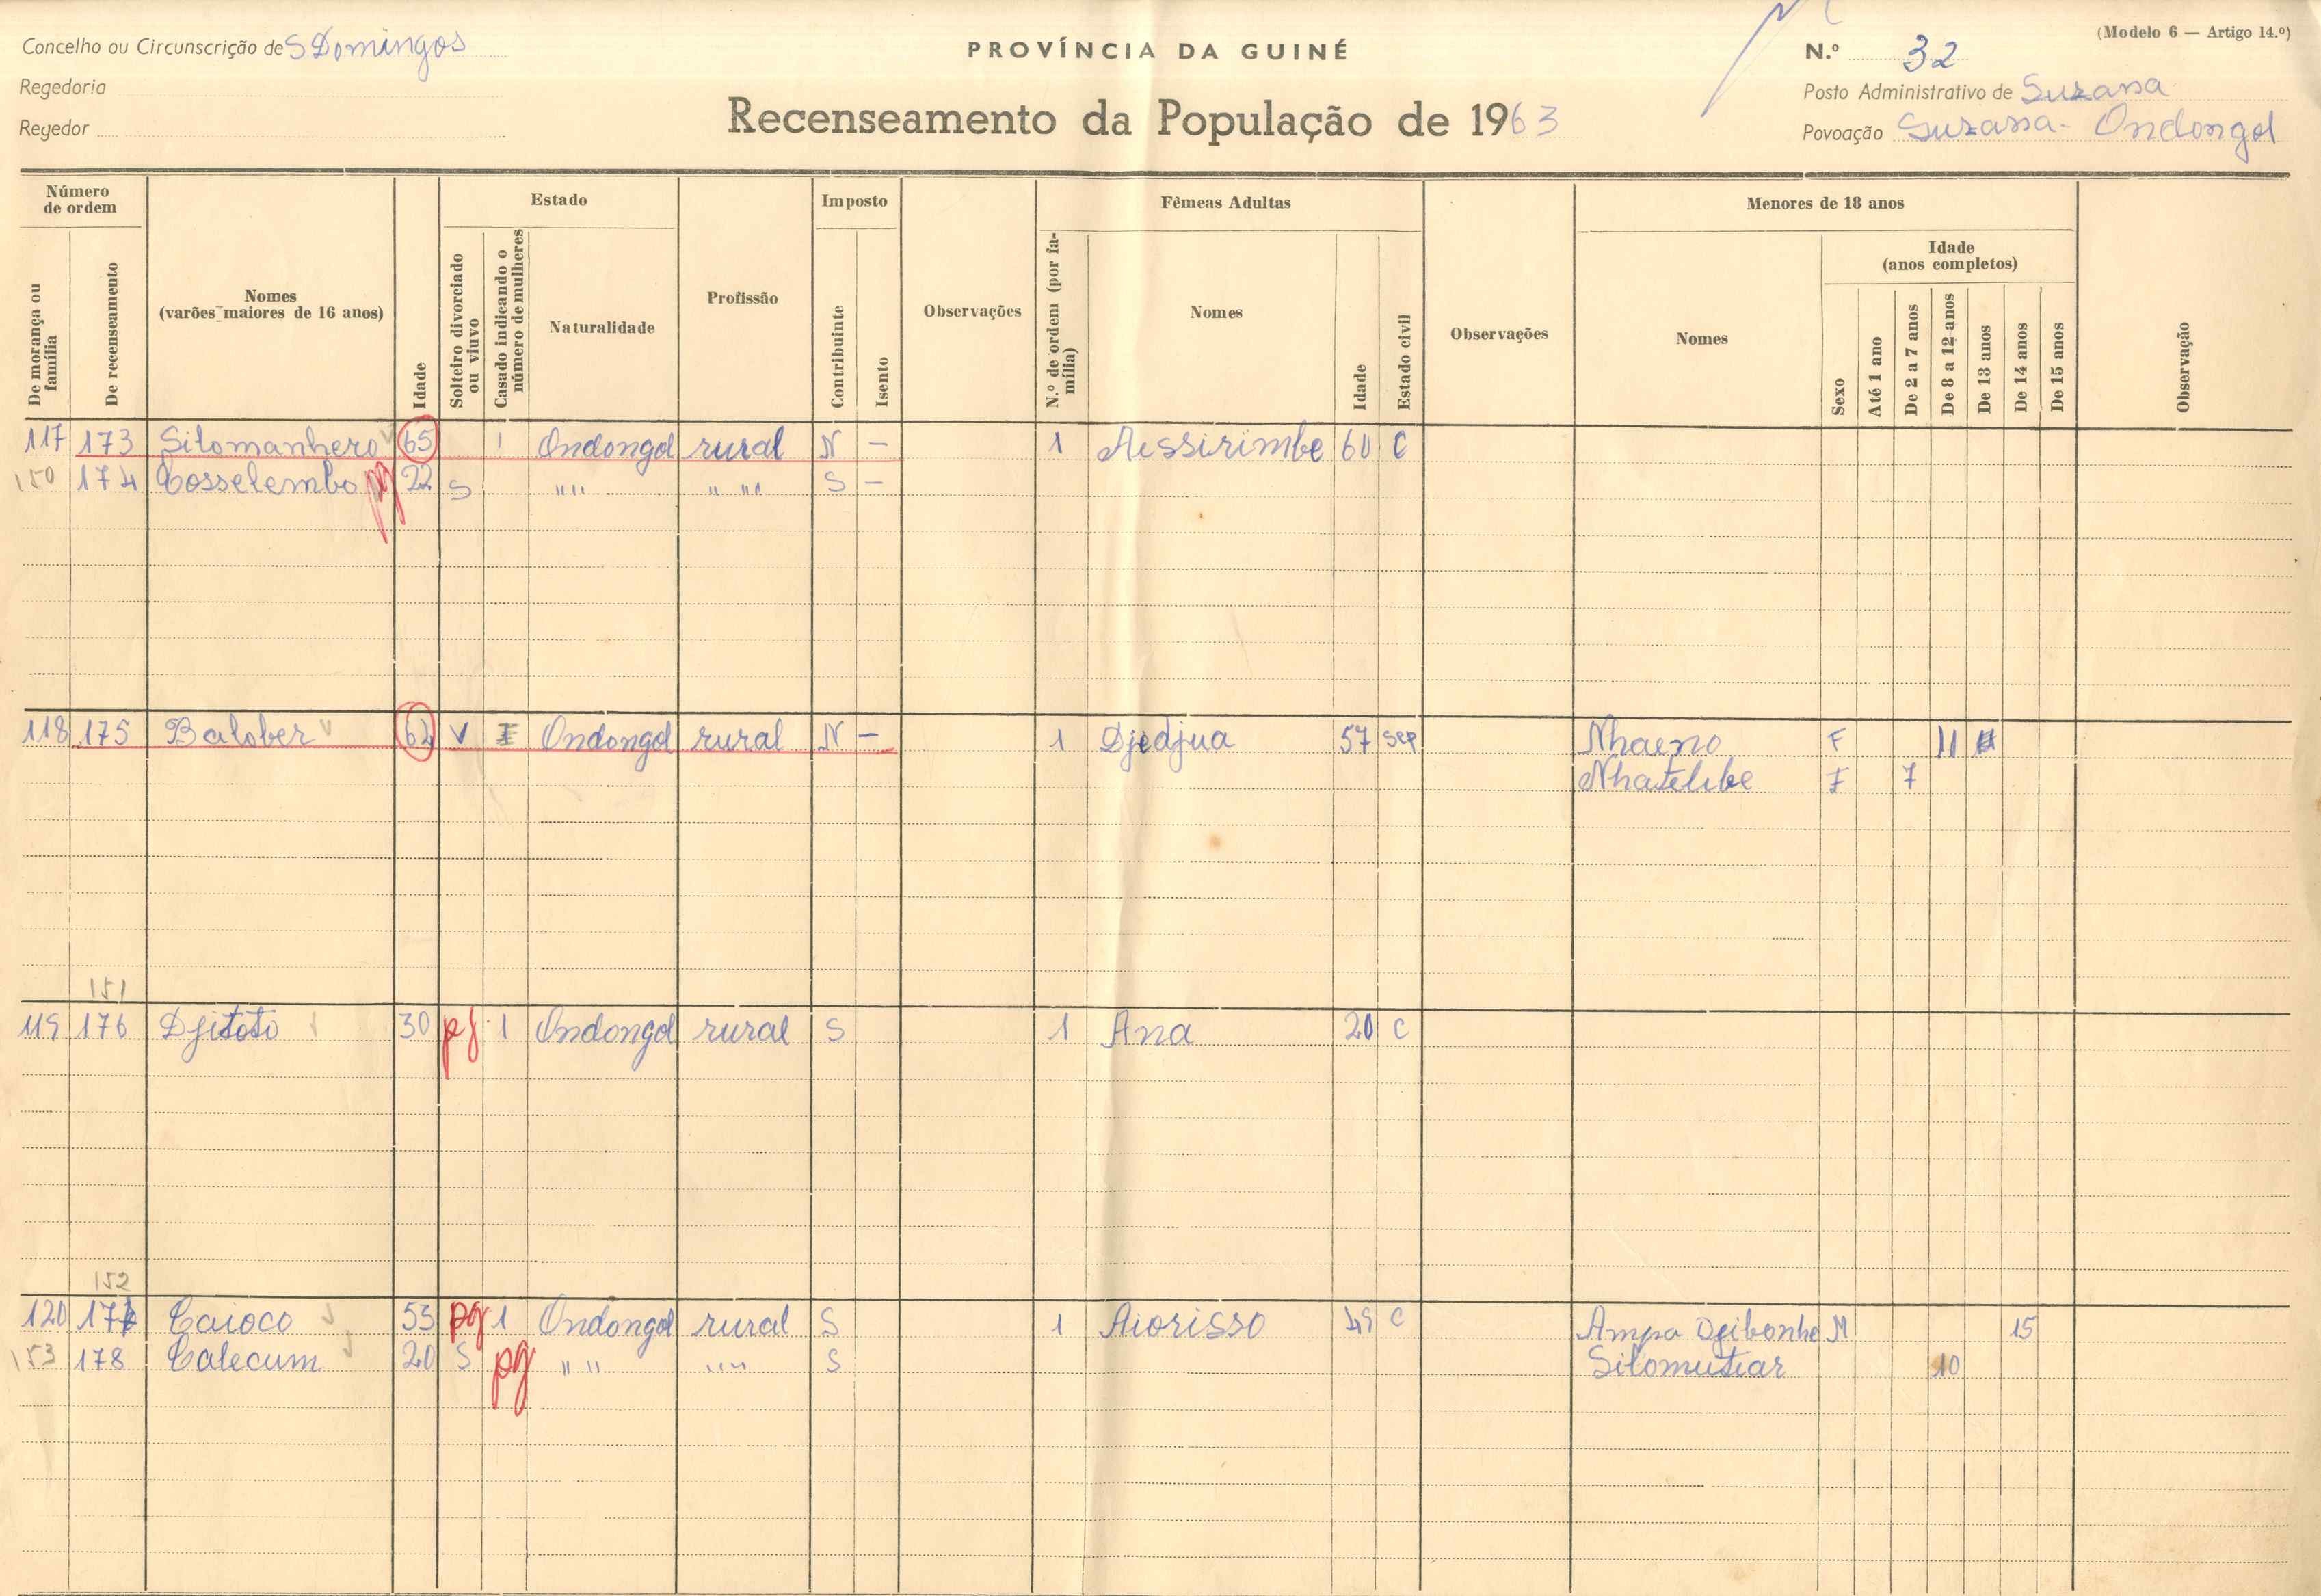 (Modelo 6 — Artigo 14.º)
Concelho ou Circunscrição de S Domingos
PROVÍNCIA DA GUINÉ
N.º 32
Regedoria
Posto Administrativo de Suzana
Regedor
Recenseamento da População de 1963
Povoação Suzana - Ondongol
Número de ordem
Estado
Imposto
Fêmeas Adultas
Menores de 18 anos
De morança ou família
De recenseamento
Nomes (varões maiores de 16 anos)
Idade
Solteiro divorciado ou viuvo
Casado indicando o número de mulheres
Naturalidade
Profissão
Contribuinte
Isento
Observações
N.º de ordem (por família)
Nomes
Idade
Estado civil
Observações
Nomes
Sexo
Idade (anos completos)
Até 1 ano
De 2 a 7 anos
De 8 a 12 anos
De 13 anos
De 14 anos
De 15 anos
Observação
117 173 Silomanhero 65 1 Ondongol rural N — 1 Aessirimbe 60 C
150 174 Cosselembo pg 22 S "" "" S —
118 175 Balober 62 V Ondongol rural N — 1 Djedjua 57 sep Nhaeno F 11
Nhatelibe F 7
151
119 176 Djitoto 30 pg 1 Ondongol rural S 1 Ana 20 C
152
120 177 Caioco 53 pg 1 Ondongol rural S 1 Aiorisso 49 C Ampa Djibonhe M 15
153 178 Calecum 20 S pg "" "" S Silomutiar 10